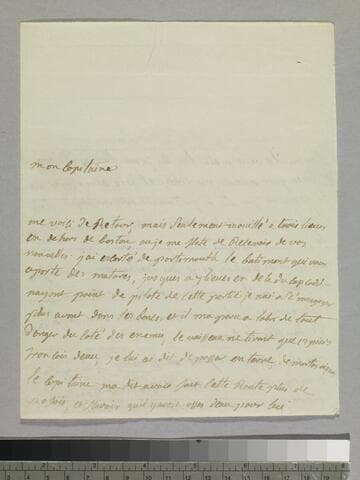 mon Capitaine
me voici de Retour, mais seulement mouillé a trois lieues
en dehors de boston, ou je me flate de Recevoir de vos
nouvelles. j'ai escorté de portsmouth le batiment qui vous
aporte des matures, jusques a 7 lieues en de la du cap cod
nayant point de pilote de cette partie je n'ai osé m'engager
plus avant dans la baie, et il ma paru a labri de tout
danger du coté des ennemis, le vaisseau ne tirant que
pieds francois deau je lui ai dit de passer en terre de
le capitaine ma dit avoir fait cette Route plus de
fois, et savoir quil y avoit assez deau pour lui